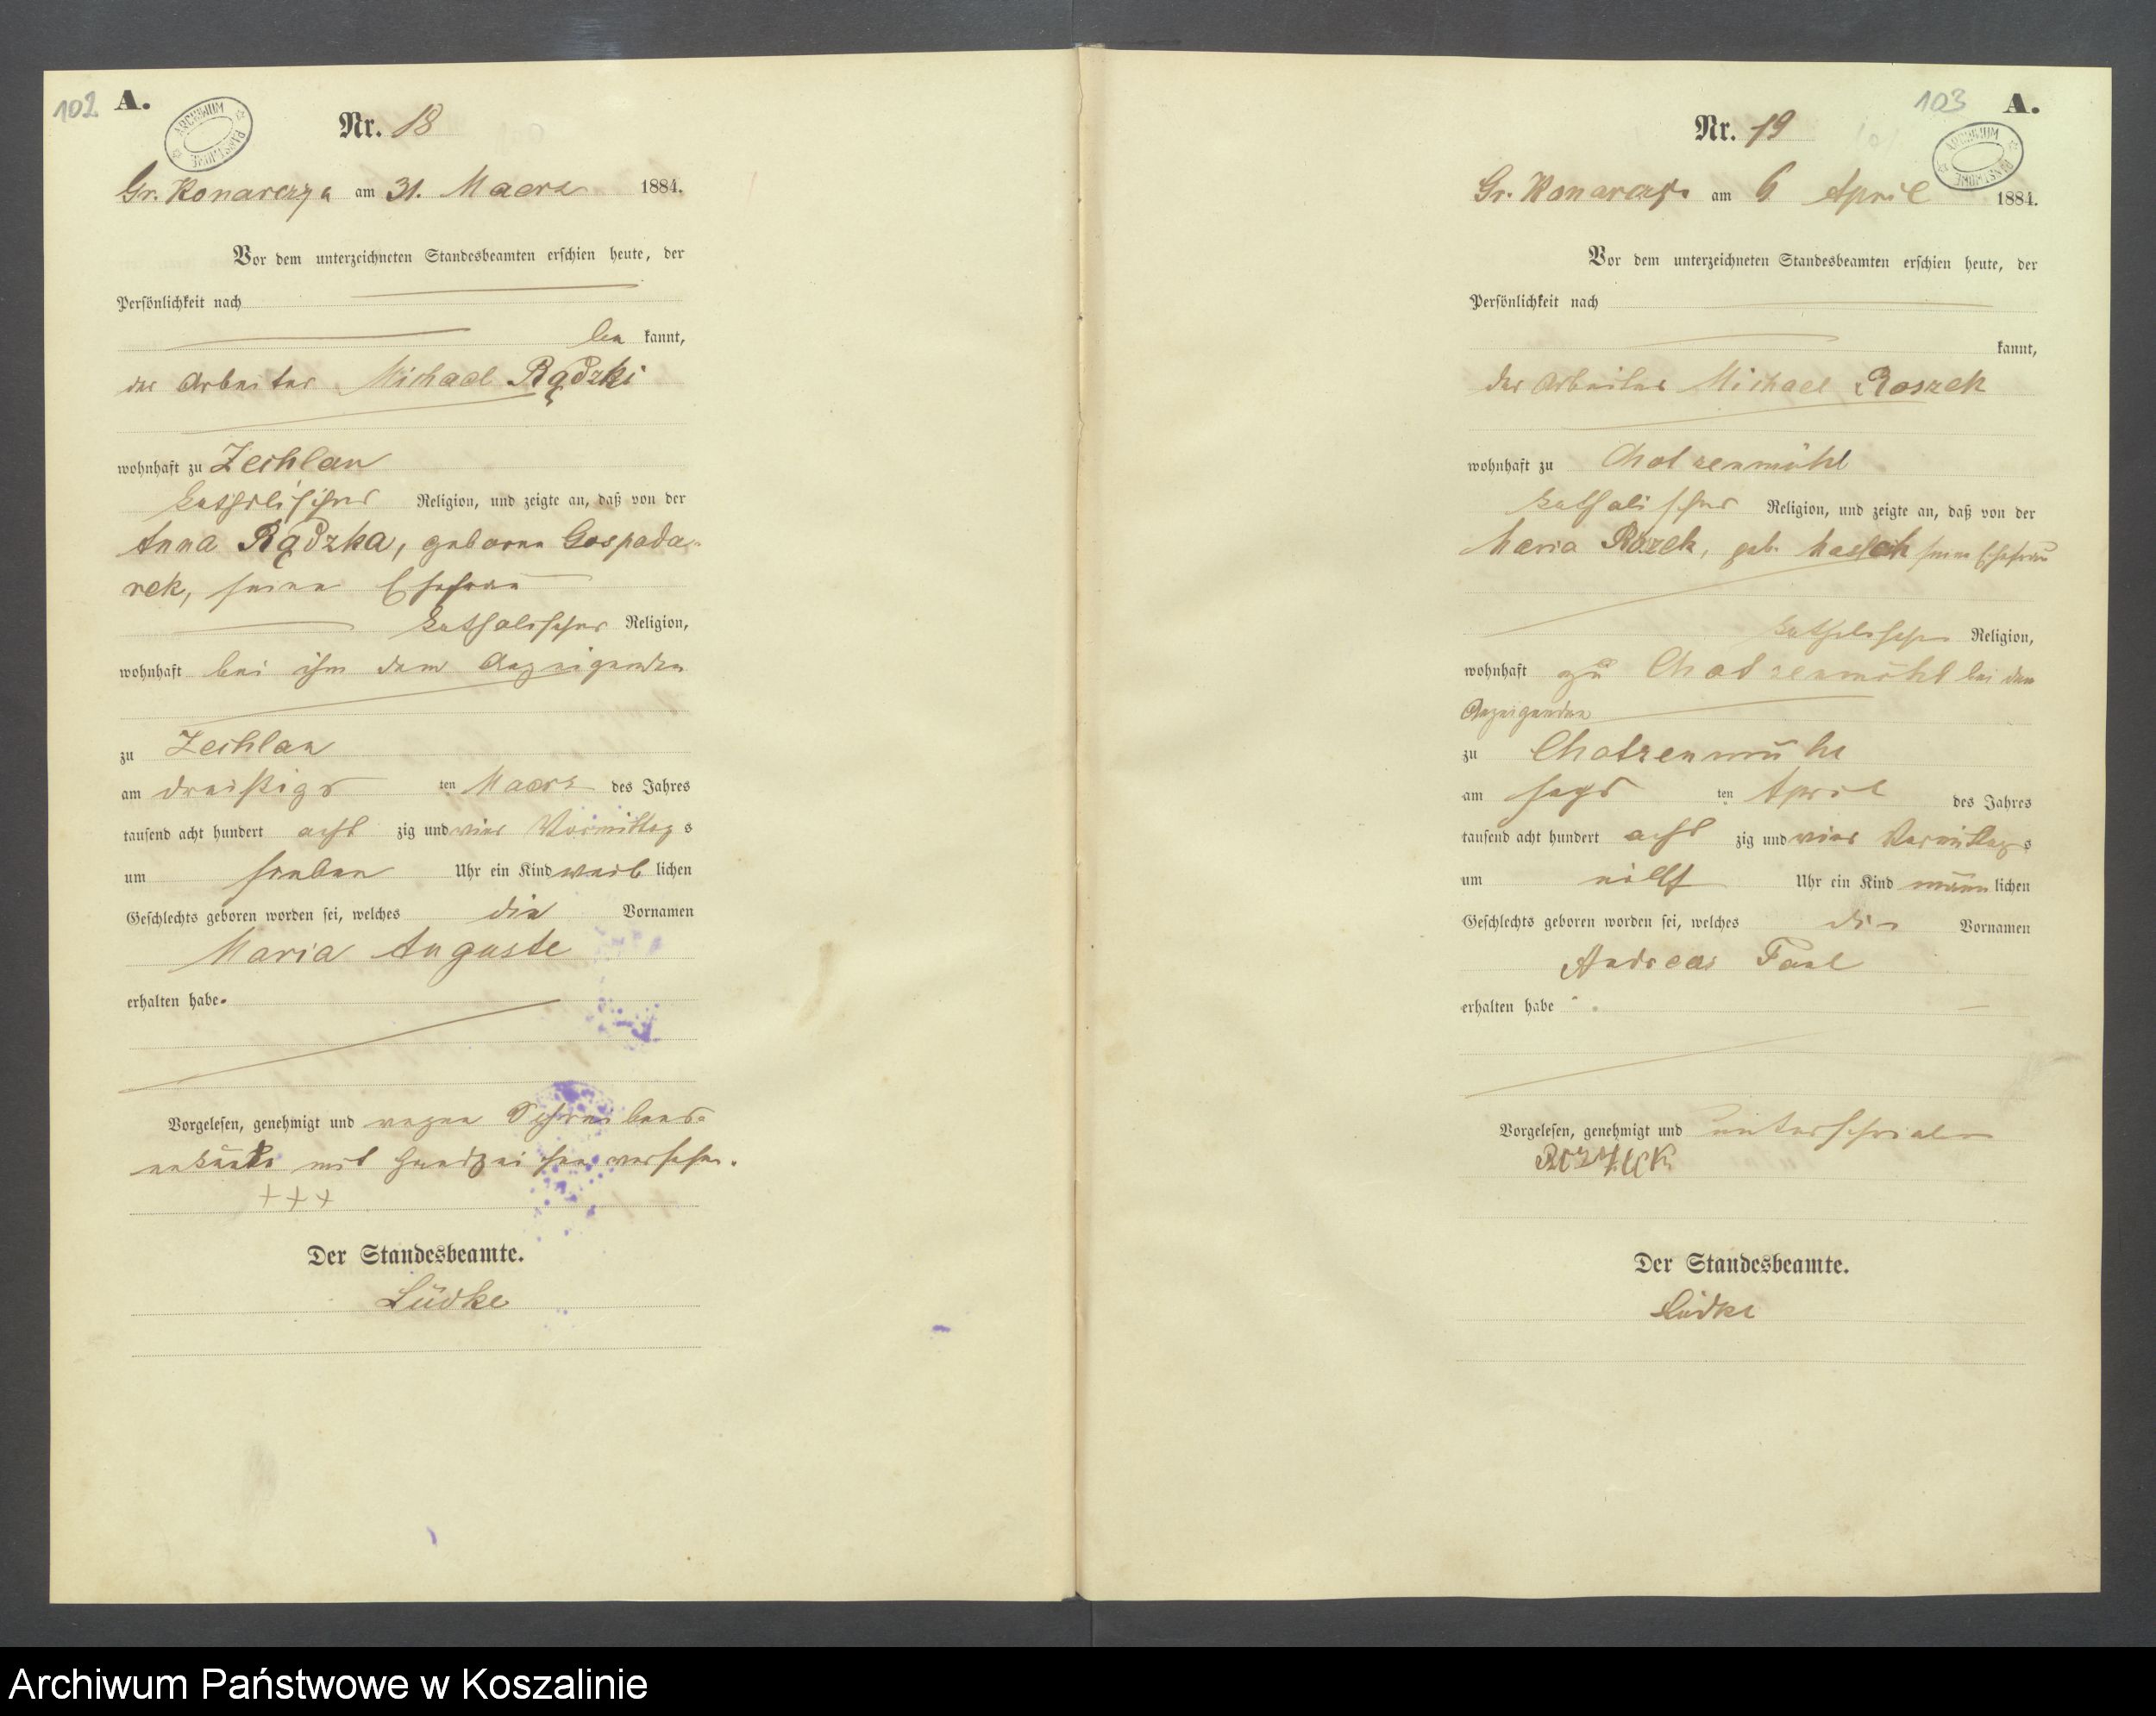 102 A.
ARCHIWUM PAŃSTWOWE
Nr. 18
Gr. Konarczyn am 31. Maerz 1884.
Vor dem unterzeichneten Standesbeamten erschien heute, der
Persönlichkeit nach
be kannt,
der Arbeiter Michael Rądzki
wohnhaft zu Zechlau
katholischer Religion, und zeigte an, daß von der
Anna Rądzka, geborne Gospoda-
rek, seine Ehefrau
katholischer Religion,
wohnhaft bei ihm dem Anzeigenden
zu Zechlau
am dreißigs ten Maerz des Jahres
tausend acht hundert acht zig und vier Vormittag s
um sieben Uhr ein Kind weib lichen
Geschlechts geboren worden sei, welches die Vornamen
Maria Auguste
erhalten habe.
Vorgelesen, genehmigt und wegen Schreibens-
unkunde mit Handzeichen versehen.
+++
Der Standesbeamte.
Lüdke
103 A.
ARCHIWUM PAŃSTWOWE
Nr. 19
Gr. Konarczyn am 6 April 1884.
Vor dem unterzeichneten Standesbeamten erschien heute, der
Persönlichkeit nach
kannt,
der Arbeiter Michael Roszek
wohnhaft zu Chotzenmühl
katholischer Religion, und zeigte an, daß von der
Maria Rozek, geb. seine Ehefrau
katholischer Religion,
wohnhaft zu Chotzenmühl bei dem
Anzeigenden
zu Chotzenmühl
am sechs ten April des Jahres
tausend acht hundert acht zig und vier Vormittag s
um eilf Uhr ein Kind männ lichen
Geschlechts geboren worden sei, welches die Vornamen
Andreas Paul
erhalten habe .
Vorgelesen, genehmigt und unterschrieben
Der Standesbeamte.
Lüdke
Archiwum Państwowe w Koszalinie